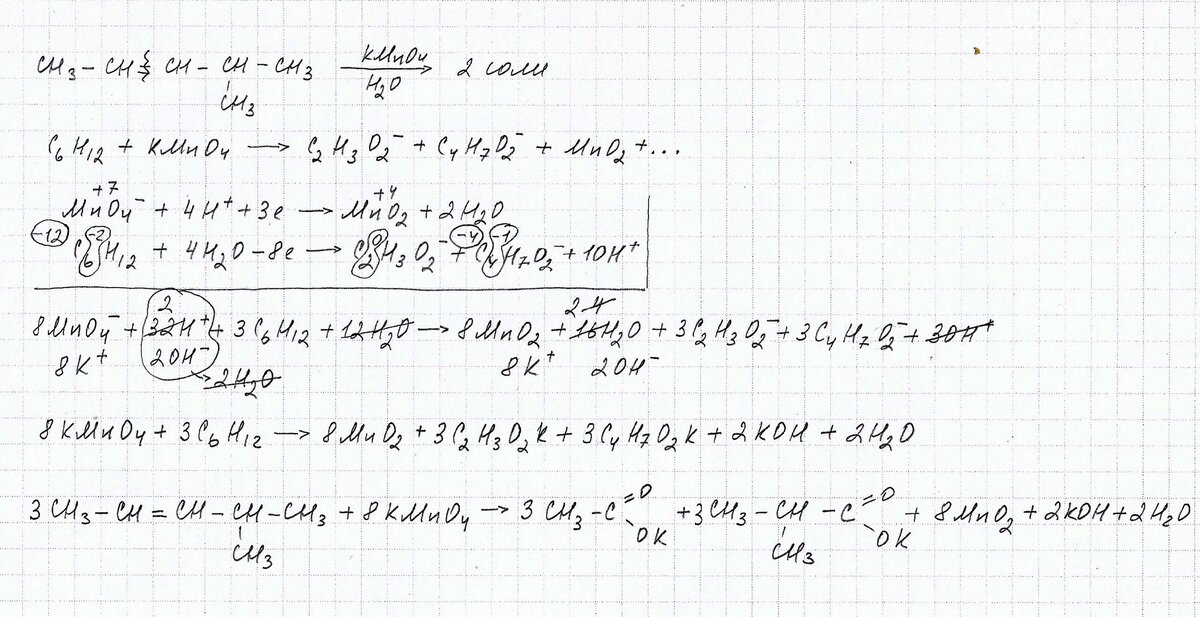 CH₃ – CH ⸾ CH – CH – CH₃ KMnO₄ / H₂O → 2 соли
CH₃
C₆H₁₂ + KMnO₄ → C₂H₃O₂⁻ + C₄H₇O₂⁻ + MnO₂ + ...
+7 +4
MnO₄⁻ + 4H⁺ + 3e → MnO₂ + 2H₂O
-12 -2 0 -4 -1
C₆H₁₂ + 4H₂O – 8e → C₂H₃O₂⁻ + C₄H₇O₂⁻ + 10H⁺
2 2 4
8MnO₄⁻ + 32H⁺ + 3C₆H₁₂ + 12H₂O → 8MnO₂ + 16H₂O + 3C₂H₃O₂⁻ + 3C₄H₇O₂⁻ + 30H⁺
8K⁺ 2OH⁻ 8K⁺ 2OH⁻
→ 2H₂O
8KMnO₄ + 3C₆H₁₂ → 8MnO₂ + 3C₂H₃O₂K + 3C₄H₇O₂K + 2KOH + 2H₂O
3CH₃ – CH = CH – CH – CH₃ + 8KMnO₄ → 3CH₃ – C =O + 3CH₃ – CH – C =O + 8MnO₂ + 2KOH + 2H₂O
CH₃ OK CH₃ OK